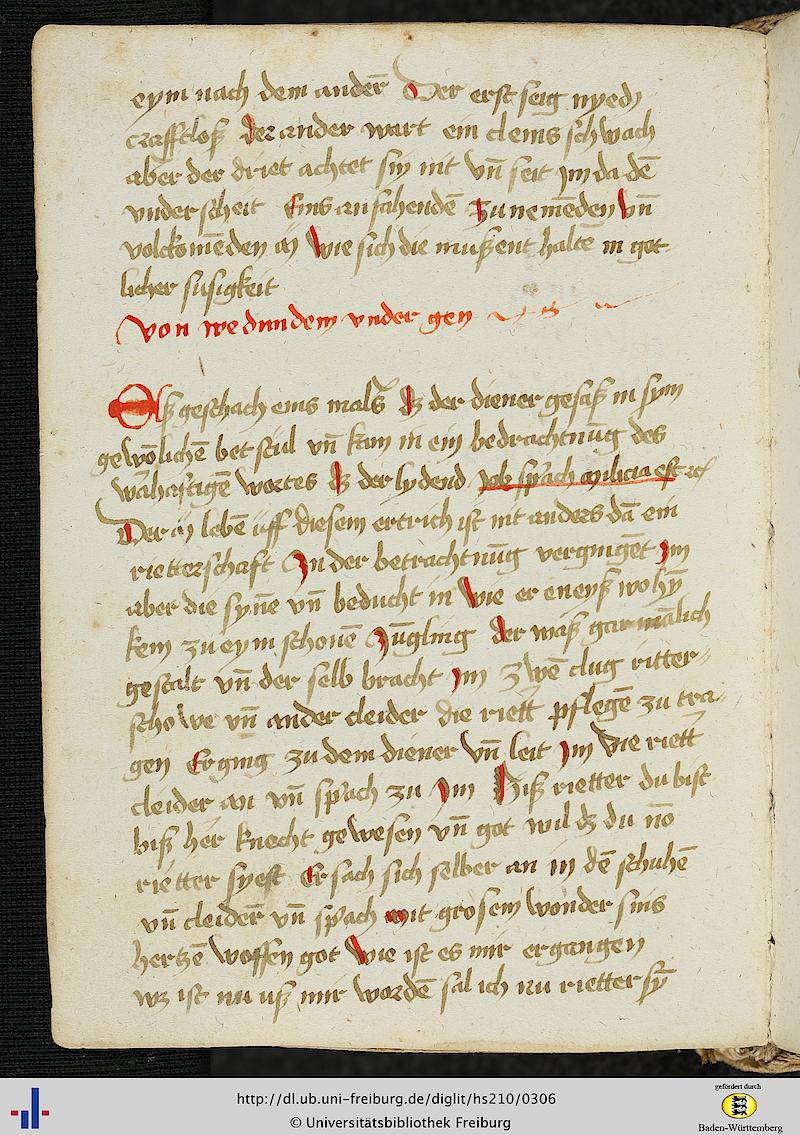 eym nach dem anderē Der erst seig nyedɔ
crafftloß der ander wart ein cleins schwach
aber der driet achtet sin nit vn̄ seit Im da dē
vnderscheit Eins anfahenden̄ zunemēden vn̄
volckomēden in Wie sich die muß ent haltē in got
licher susigkeit
von we dundem vnder gen
Es geschach eins mals dz der diener gesaß in sym
gewōlichē bet stul vn̄ kam in ein bedrachtnūg des
warhafftigē wortes dz der lydend job sprach milicia est rc
Der in lebē uff diesem ertrich ist nit anders dā ein
rietterschaft In der betrachtnūg vergingēt Im
aber die synē vn̄ beducht in Wie er eneyß wo hyn̄
kem zu eym schonē Jūgling der waß gar manlich
gestalt vn̄ der selb bracht Im zwē clug ritter
schowe vn̄ ander cleider die riett pflegē zu tra
gen Er ging zu dem diener vn̄ leit Im die riett
cleider an vn̄ sprach zu Im Hiß rietter du bist
biß her knecht gewesen vn̄ got wil dz du nō
rietter syest Er sach sich selber an in dē schuhē
vn̄ cleiderē vn̄ sprach mit grosem wonder sins
hertzē woffen got Wie ist es mir ergangen
wz ist nu uß mir wordē sal ich nu rietter sȳ
http://dl.ub.uni-freiburg.de/diglit/hs210/0306
© Universitätsbibliothek Freiburg
gefördert durch
Baden-Württemberg